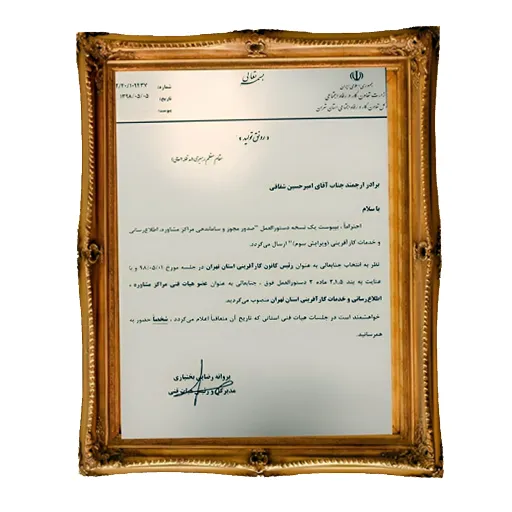 بسمه تعالی
جمهوری اسلامی ایران
وزارت تعاون، کار و رفاه اجتماعی
اداره کل تعاون کار و رفاه اجتماعی استان تهران
شماره:
۲/۲۰/۱۰۹۲۳۷
تاریخ:
۱۳۹۸/۰۵/۰۵
پیوست:
« رونق تولید »
مقام معظم رهبری
برادر ارجمند جناب آقای امیرحسین شفاقی
با سلام
احتراماً، بپیوست یک نسخه دستورالعمل "صدور مجوز و ساماندهی مراکز مشاوره، اطلاع‌رسانی
و خدمات کارآفرینی (ویرایش سوم)" ارسال می‌گردد.
نظر به انتخاب جنابعالی به عنوان رئیس کانون کارآفرینی استان تهران در جلسه مورخ ۹۸/۰۵/۰۱ و با
عنایت به بند ۳.۱.۵ ماده ۲ دستورالعمل فوق ، جنابعالی به عنوان عضو هیات فنی مراکز مشاوره ،
اطلاع‌رسانی و خدمات کارآفرینی استان تهران منصوب می‌گردید.
خواهشمند است در جلسات هیات فنی استانی که تاریخ آن متعاقباً اعلام می‌گردد ، شخصاً حضور به
هم رسانید.
پروانه رضایی بختیاری
مدیرکل و رئیس هیات فنی